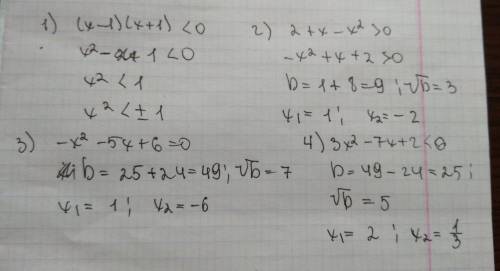 1) (x-1)(x+1) < 0
x² - 1 < 0
x² < 1
x² < ± 1
2) 2 + x - x² > 0
-x² + x + 2 > 0
D = 1 + 8 = 9 ; √D = 3
x₁ = 1 ; x₂ = -2
3) -x² - 5x + 6 = 0
D = 25 + 24 = 49 ; √D = 7
x₁ = 1 ; x₂ = -6
4) 3x² - 7x + 2 < 0
D = 49 - 24 = 25 ;
√D = 5
x₁ = 2 ; x₂ = 1/3